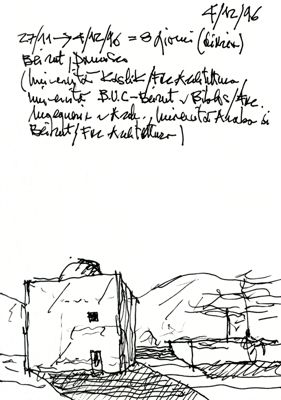 4/12/96
27/11 → 4/12/96 = 8 giorni
Beirut, Damasco
(Università Kaslik/Fac Architettura,
Università B.U.C-Beirut Byblos/Fac.
Ingegneria Arch., Università Araba di
Beirut/Fac Architettura)